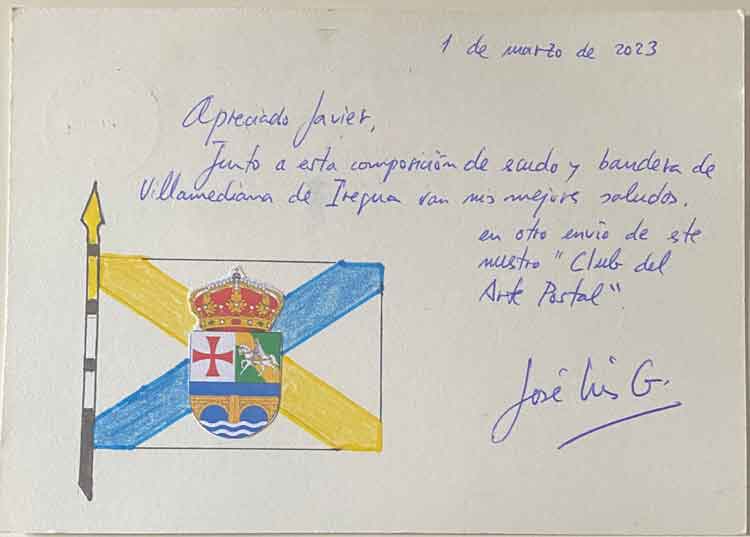 1 de marzo de 2023
Apreciado Javier,
Junto a esta composición de escudo y bandera de
Villamediana de Iregua van mis mejores saludos.
en otro envío de este
nuestro "Club del
Arte Postal".
José Luis G.